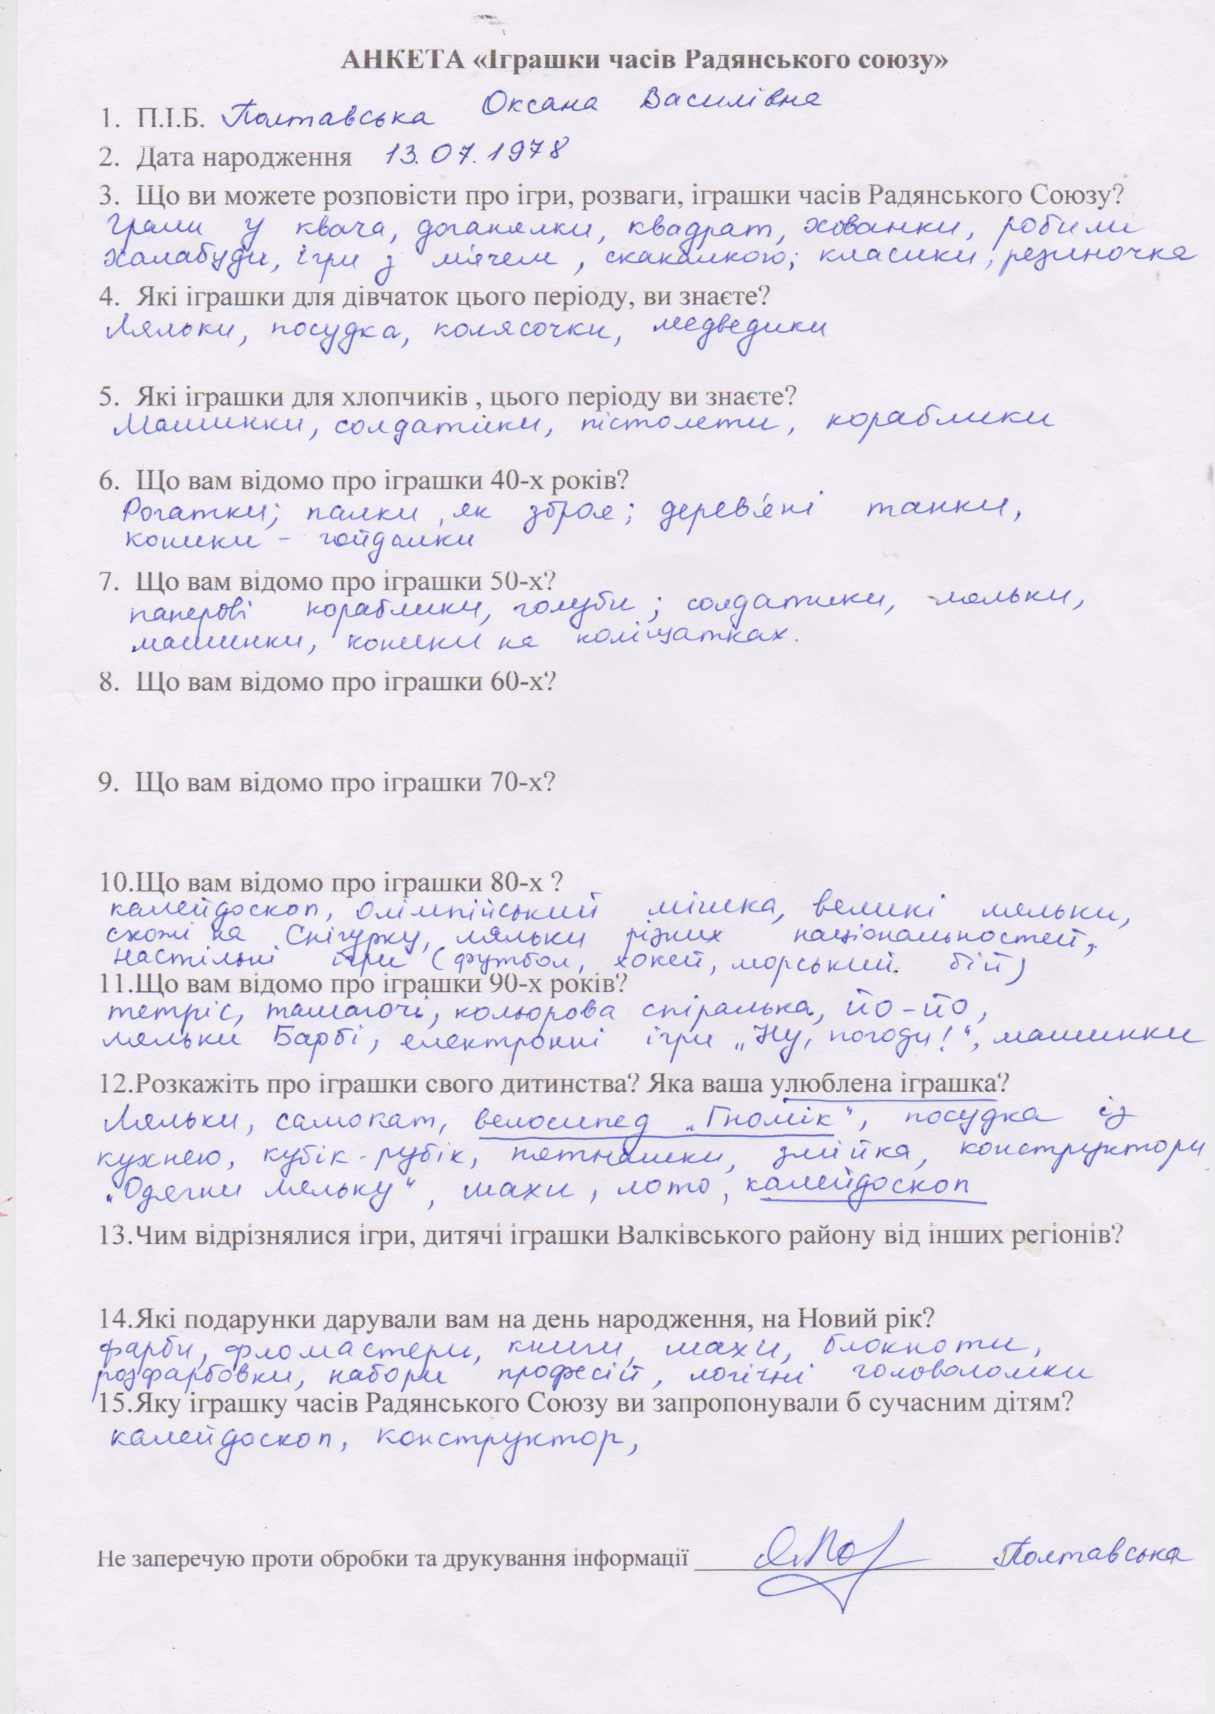 АНКЕТА «Іграшки часів Радянського союзу»
1. П.І.Б. Полтавська Оксана Василівна
2. Дата народження 13.07.1978
3. Що ви можете розповісти про ігри, розваги, іграшки часів Радянського Союзу?
Грали у квача, доганялки, квадрат, хованки, робили
халабуди, ігри з м'ячем, скакалкою; класики, резиночка
4. Які іграшки для дівчаток цього періоду, ви знаєте?
Ляльки, посудка, колясочки, медведики
5. Які іграшки для хлопчиків , цього періоду ви знаєте?
Машинки, солдатики, пістолети, кораблики
6. Що вам відомо про іграшки 40-х років?
Рогатки; палки, як зброя; дерев'яні танки,
коники - гойдалки
7. Що вам відомо про іграшки 50-х?
паперові кораблики, голуби; солдатики, ляльки,
машинки, коники на коліщатках.
8. Що вам відомо про іграшки 60-х?
9. Що вам відомо про іграшки 70-х?
10.Що вам відомо про іграшки 80-х ?
калейдоскоп, олімпійський мішка, великі ляльки,
схожі на Снігурку, ляльки різних національностей,
настільні ігри (футбол, хокей, морський бій)
11.Що вам відомо про іграшки 90-х років?
тетріс, тамагочі, кольорова спіралька, йо-йо,
ляльки Барбі, електронні ігри „Ну, погоди!", машинки
12.Розкажіть про іграшки свого дитинства? Яка ваша улюблена іграшка?
Ляльки, самокат, велосипед „Гномік", посудка із
кухнею, кубік-рубік, пятнашки, змійка, конструктори
„Одягни ляльку", шахи, лото, калейдоскоп
13.Чим відрізнялися ігри, дитячі іграшки Валківського району від інших регіонів?
14.Які подарунки дарували вам на день народження, на Новий рік?
фарби, фломастери, книги, шахи, блокноти,
розфарбовки, набори професій, логічні головоломки
15.Яку іграшку часів Радянського Союзу ви запропонували б сучасним дітям?
калейдоскоп, конструктор,
Не заперечую проти обробки та друкування інформації Полтавська